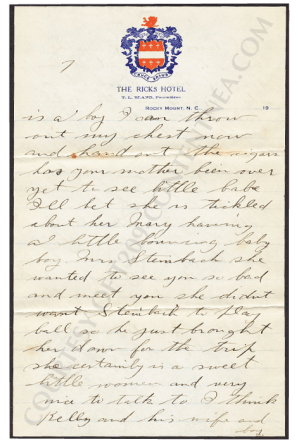 7
THE RICKS HOTEL
ROCKY MOUNT, N. C. 19
is a boy I can throw
out my chest now
and hand out the cigars
has your mother been over
yet to see little babe
I'll bet she is tickled
about her Mary having
a little bouncing baby
boy. Mrs Steinback she
wanted to see you so bad
and meet you she didnt
want Steinback to play
ball so he just brought
her down for the trip
she certainly is a sweet
little women and very
nice to talk to I think
Kelly and his wife and
boy